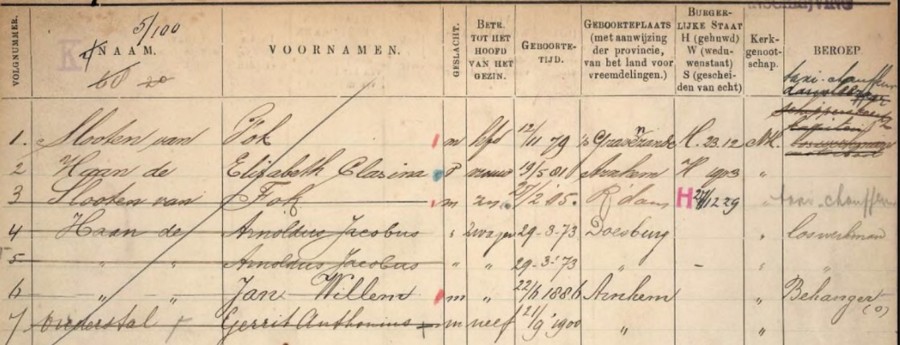 INSCHRIJVING
5/100
VOLGNUMMER. NAAM. VOORNAMEN. GESLACHT. BETR. TOT HET HOOFD VAN HET GEZIN. GEBOORTE-TIJD. GEBOORTEPLAATS (met aanwijzing der provincie, van het land voor vreemdelingen.) BURGER-LIJKE STAAT H (gehuwd) W (weduwenstaat) S (gescheiden van echt) Kerk-genoot-schap. BEROEP.
taxi-chauffeur
1. Slooten van Fok m hfd 12/11 79 's Gravezande H. 23.12 NH.
2 Haan de Elizabeth Clasina v vrouw 19/5 81 Arnhem H 1903 "
3 Slooten van Fok m zn 2 05. R'dam H 29 taxi-chauffeur
4 Haan de Arnoldus Jacobus " zwager 29-3-73 Doesburg " loswerkman
5 " " Arnoldus Jacobus " " 29-3-73 - " "
6 " " Jan Willem m " 22/6 1886 Arnhem " Behanger
7 Gerrit Anthonius m neef 21/9 1900 " "